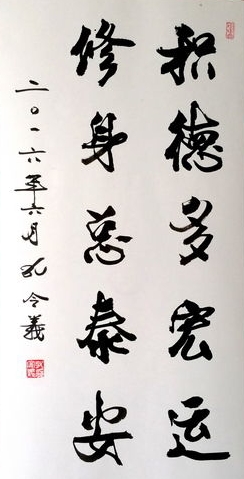 积德多宏运
修身总泰安
二〇一六年六月孔令義